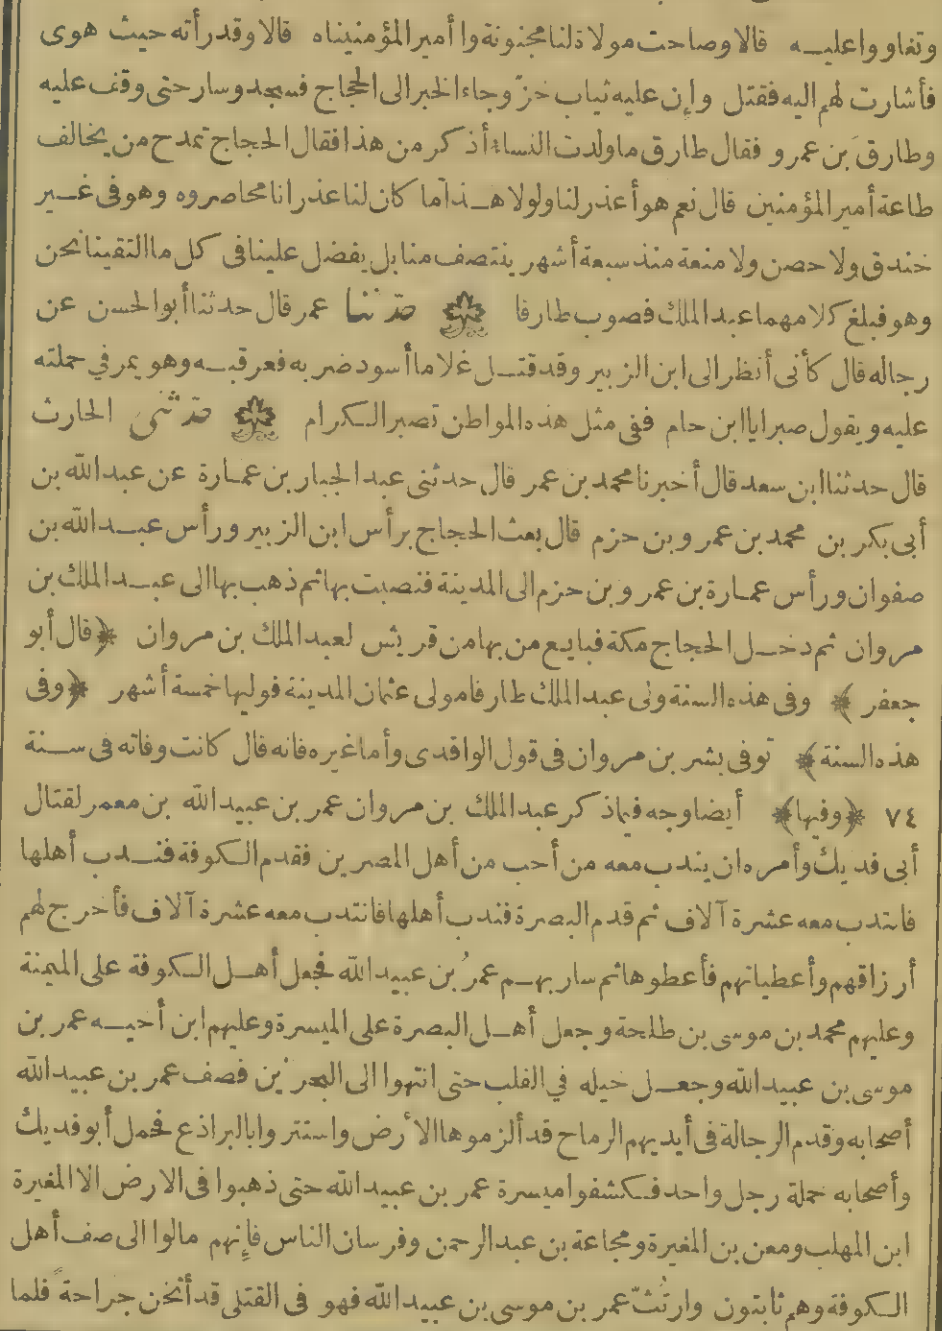 وتغاووا عليه قالا وصاحت مولاة لنا مجنونة وا أمير المؤمنيناه قالا وقد رأته حيث هوى
فأشارت لهم اليه فقتل وإن عليه ثياب خزّ وجاء الخبر الى الحجاج فسجد وسار حتى وقف عليه
وطارق بن عمرو فقال طارق ما ولدت النساء أذكر من هذا فقال الحجاج تمدح من يخالف
طاعة أمير المؤمنين قال نعم هو أعذر لنا ولولا هذا ما كان لنا عذر انا محاصروه وهو فى غير
خندق ولا حصن ولا منعة منذ سبعة أشهر ينتصف منا بل يفضل علينا فى كل ما التقينا نحن
وهو فبلغ كلامهما عبد الملك فصوب طارقا حدثنا عمر قال حدثنا أبو الحسن عن
رجاله قال كأنى أنظر الى ابن الزبير وقد قتل غلاما أسود ضربه فعرقبه وهو يمر في حملته
عليه ويقول صبرا يا ابن حام ففى مثل هذه المواطن تصبر الكرام حدثنى الحارث
قال حدثنا ابن سعد قال أخبرنا محمد بن عمر قال حدثنى عبد الجبار بن عمارة عن عبد الله بن
أبى بكر بن محمد بن عمرو بن حزم قال بعث الحجاج برأس ابن الزبير ورأس عبد الله بن
صفوان ورأس عمارة بن عمرو بن حزم الى المدينة فنصبت بها ثم ذهب بها الى عبد الملك بن
مروان ثم دخل الحجاج مكة فبايع من بها من قريش لعبد الملك بن مروان ﴿قال أبو
جعفر﴾ وفى هذه السنة ولى عبد الملك طارقا مولى عثمان المدينة فوليها خمسة أشهر ﴿وفى
هذه السنة﴾ توفى بشر بن مروان فى قول الواقدى وأما غيره فانه قال كانت وفاته فى سنة
٧٤ ﴿وفيها﴾ أيضا وجه فيما ذكر عبد الملك بن مروان عمر بن عبيد الله بن معمر لقتال
أبى فديك وأمره ان يندب معه من أحب من أهل المصرين فقدم الكوفة فندب أهلها
فانتدب معه عشرة آلاف ثم قدم البصرة فندب أهلها فانتدب معه عشرة آلاف فأخرج لهم
أرزاقهم وأعطياتهم فأعطوها ثم سار بهم عمرُ بن عبيد الله فجعل أهل الكوفة على الميمنة
وعليهم محمد بن موسى بن طلحة وجعل أهل البصرة على الميسرة وعليهم ابن أخيه عمر بن
موسى بن عبيد الله وجعل خيله في القلب حتى انتهوا الى البحرين فصف عمر بن عبيد الله
أصحابه وقدم الرجالة فى أيديهم الرماح قد ألزموها الأرض واستتروا بالبراذع فحمل أبو فديك
وأصحابه حملة رجل واحد فكشفوا ميسرة عمر بن عبيد الله حتى ذهبوا فى الارض الا المغيرة
ابن المهلب ومعن بن المغيرة ومجاعة بن عبد الرحمن وفرسان الناس فإنهم مالوا الى صف أهل
الكوفة وهم ثابتون وارتُثّ عمر بن موسى بن عبيد الله فهو فى القتلى قد أثخن جراحةً فلما